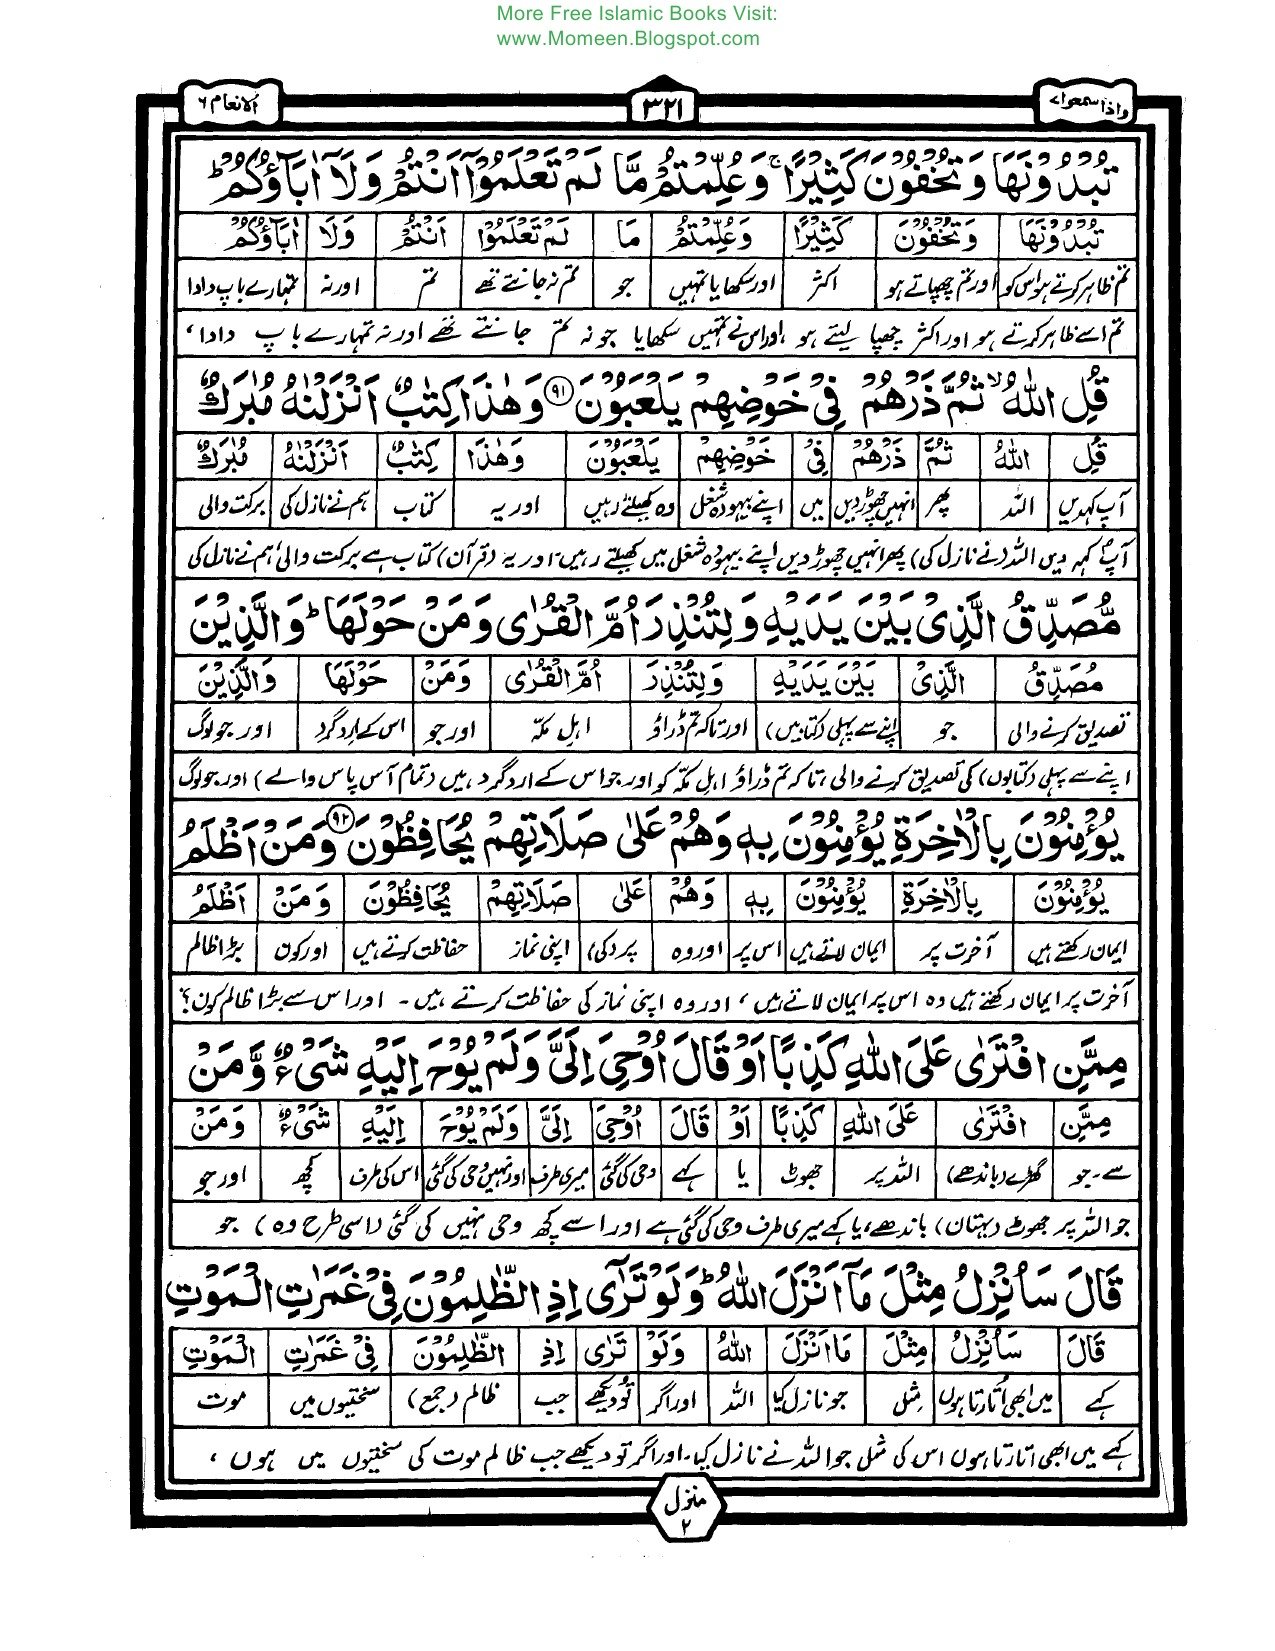 More Free Islamic Books Visit:
www.Momeen.Blogspot.com
واذا سمعوا ۷ ۳۲۱ الانعام ۶
تُبْدُوْنَهَا وَتُخْفُوْنَ كَثِيْرًا ۚ وَعُلِّمْتُمْ مَّا لَمْ تَعْلَمُوْٓا اَنْتُمْ وَلَآ اٰبَآؤُكُمْ ؕ
تُبْدُوْنَهَا وَتُخْفُوْنَ كَثِيْرًا وَعُلِّمْتُمْ مَا لَمْ تَعْلَمُوْا اَنْتُمْ وَلَا اٰبَآؤُكُمْ
تم ظاہر کرتے ہو اس کو اور تم چھپاتے ہو اکثر اور سکھایا تمہیں جو تم نہ جانتے تھے تم اور نہ تمہارے باپ دادا
تم اسے ظاہر کرتے ہو اور اکثر چھپا لیتے ہو ، اور اس نے تمہیں سکھایا جو نہ تم جانتے تھے اور نہ تمہارے باپ دادا ،
قُلِ اللّٰهُ ۙ ثُمَّ ذَرْهُمْ فِيْ خَوْضِهِمْ يَلْعَبُوْنَ ﴿۹۱﴾ وَهٰذَا كِتٰبٌ اَنْزَلْنٰهُ مُبٰرَكٌ
قُلِ اللّٰهُ ثُمَّ ذَرْهُمْ فِيْ خَوْضِهِمْ يَلْعَبُوْنَ وَهٰذَا كِتٰبٌ اَنْزَلْنٰهُ مُبٰرَكٌ
آپ کہدیں اللہ پھر انہیں چھوڑ دیں میں اپنے بیہودہ شغل وہ کھیلتے رہیں اور یہ کتاب ہم نے نازل کی برکت والی
آپ کہہ دیں اللہ (نے نازل کی) پھر انہیں چھوڑ دیں اپنے بیہودہ شغل میں کھیلتے رہیں۔ اور یہ (قرآن) کتاب ہے برکت والی ہم نے نازل کی
مُّصَدِّقُ الَّذِيْ بَيْنَ يَدَيْهِ وَلِتُنْذِرَ اُمَّ الْقُرٰى وَمَنْ حَوْلَهَا ؕ وَالَّذِيْنَ
مُصَدِّقُ الَّذِيْ بَيْنَ يَدَيْهِ وَلِتُنْذِرَ اُمَّ الْقُرٰى وَمَنْ حَوْلَهَا وَالَّذِيْنَ
تصدیق کرنے والی جو اپنے سے پہلی (کتابیں) اور تاکہ تم ڈراؤ اہلِ مکہ اور جو اس کے اردگرد اور جو لوگ
اپنے سے پہلی (کتابوں) کی تصدیق کرنے والی ، تاکہ تم ڈراؤ اہلِ مکہ کو اور جو اس کے اردگرد ہیں (تمام آس پاس والے) اور جو لوگ
يُؤْمِنُوْنَ بِالْاٰخِرَةِ يُؤْمِنُوْنَ بِهٖ وَهُمْ عَلٰى صَلَاتِهِمْ يُحَافِظُوْنَ ﴿۹۲﴾ وَمَنْ اَظْلَمُ
يُؤْمِنُوْنَ بِالْاٰخِرَةِ يُؤْمِنُوْنَ بِهٖ وَهُمْ عَلٰى صَلَاتِهِمْ يُحَافِظُوْنَ وَمَنْ اَظْلَمُ
ایمان رکھتے ہیں آخرت پر ایمان لاتے ہیں اس پر اور وہ پر (کی) اپنی نماز حفاظت کرتے ہیں اور کون بڑا ظالم
آخرت پر ایمان رکھتے ہیں وہ اس پر ایمان لاتے ہیں ، اور وہ اپنی نماز کی حفاظت کرتے ہیں ۔ اور اس سے بڑا ظالم کون ؟
مِمَّنِ افْتَرٰى عَلَى اللّٰهِ كَذِبًا اَوْ قَالَ اُوْحِيَ اِلَيَّ وَلَمْ يُوْحَ اِلَيْهِ شَيْءٌ وَّمَنْ
مِمَّنِ افْتَرٰى عَلَى اللّٰهِ كَذِبًا اَوْ قَالَ اُوْحِيَ اِلَيَّ وَلَمْ يُوْحَ اِلَيْهِ شَيْءٌ وَمَنْ
سے۔جو گھڑے (باندھے) اللہ پر جھوٹ یا کہے وحی کی گئی میری طرف اور نہیں وحی کی گئی اس کی طرف کچھ اور جو
جو اللہ پر جھوٹ (بہتان) باندھے ، یا کہے میری طرف وحی کی گئی ہے اور اسے کچھ وحی نہیں کی گئی (اسی طرح وہ) جو
قَالَ سَاُنْزِلُ مِثْلَ مَآ اَنْزَلَ اللّٰهُ ؕ وَلَوْ تَرٰٓى اِذِ الظّٰلِمُوْنَ فِيْ غَمَرٰتِ الْمَوْتِ
قَالَ سَاُنْزِلُ مِثْلَ مَا اَنْزَلَ اللّٰهُ وَلَوْ تَرٰى اِذِ الظّٰلِمُوْنَ فِيْ غَمَرٰتِ الْمَوْتِ
کہے میں ابھی اُتارتا ہوں مثل جو نازل کیا اللہ اور اگر تو دیکھے جب ظالم (جمع) سختیوں میں موت
کہے میں ابھی اتارتا ہوں اس کی مثل جو اللہ نے نازل کیا۔ اور اگر تو دیکھے جب ظالم موت کی سختیوں میں ہوں ،
منزل ۲